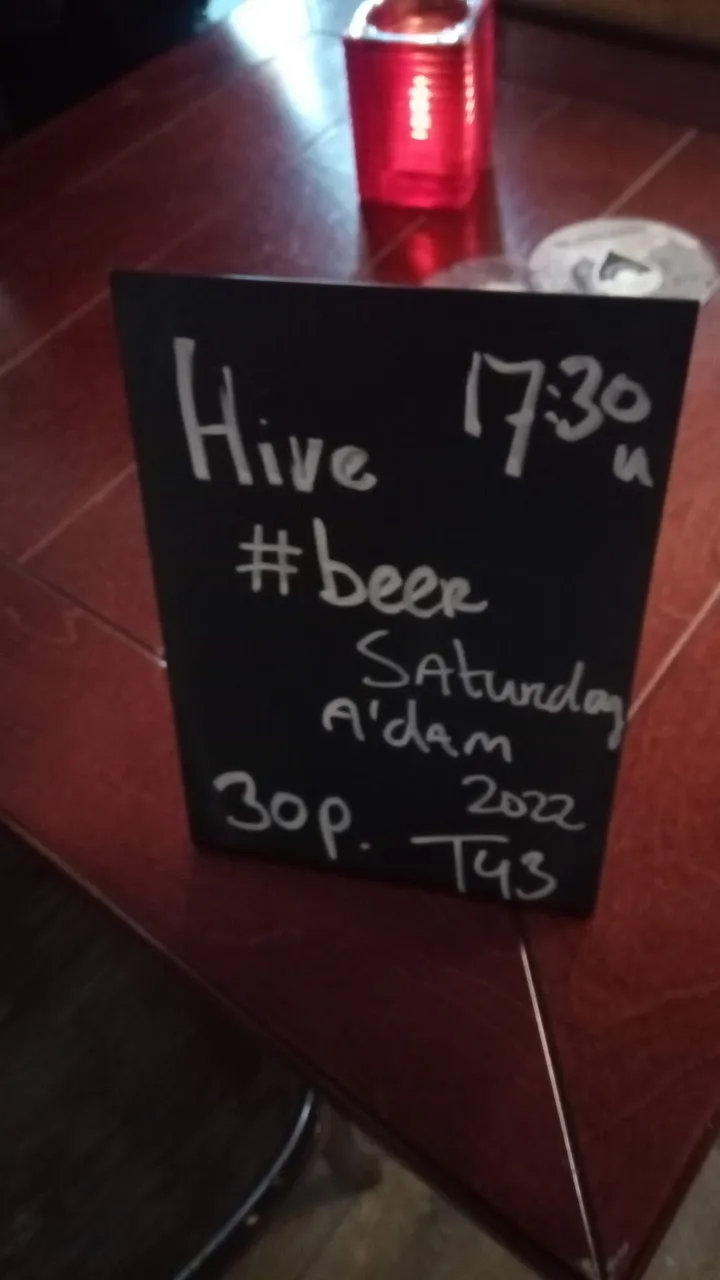 Hive 17:30
u
#beer
Saturday
A'dam
2022
30p.
T43